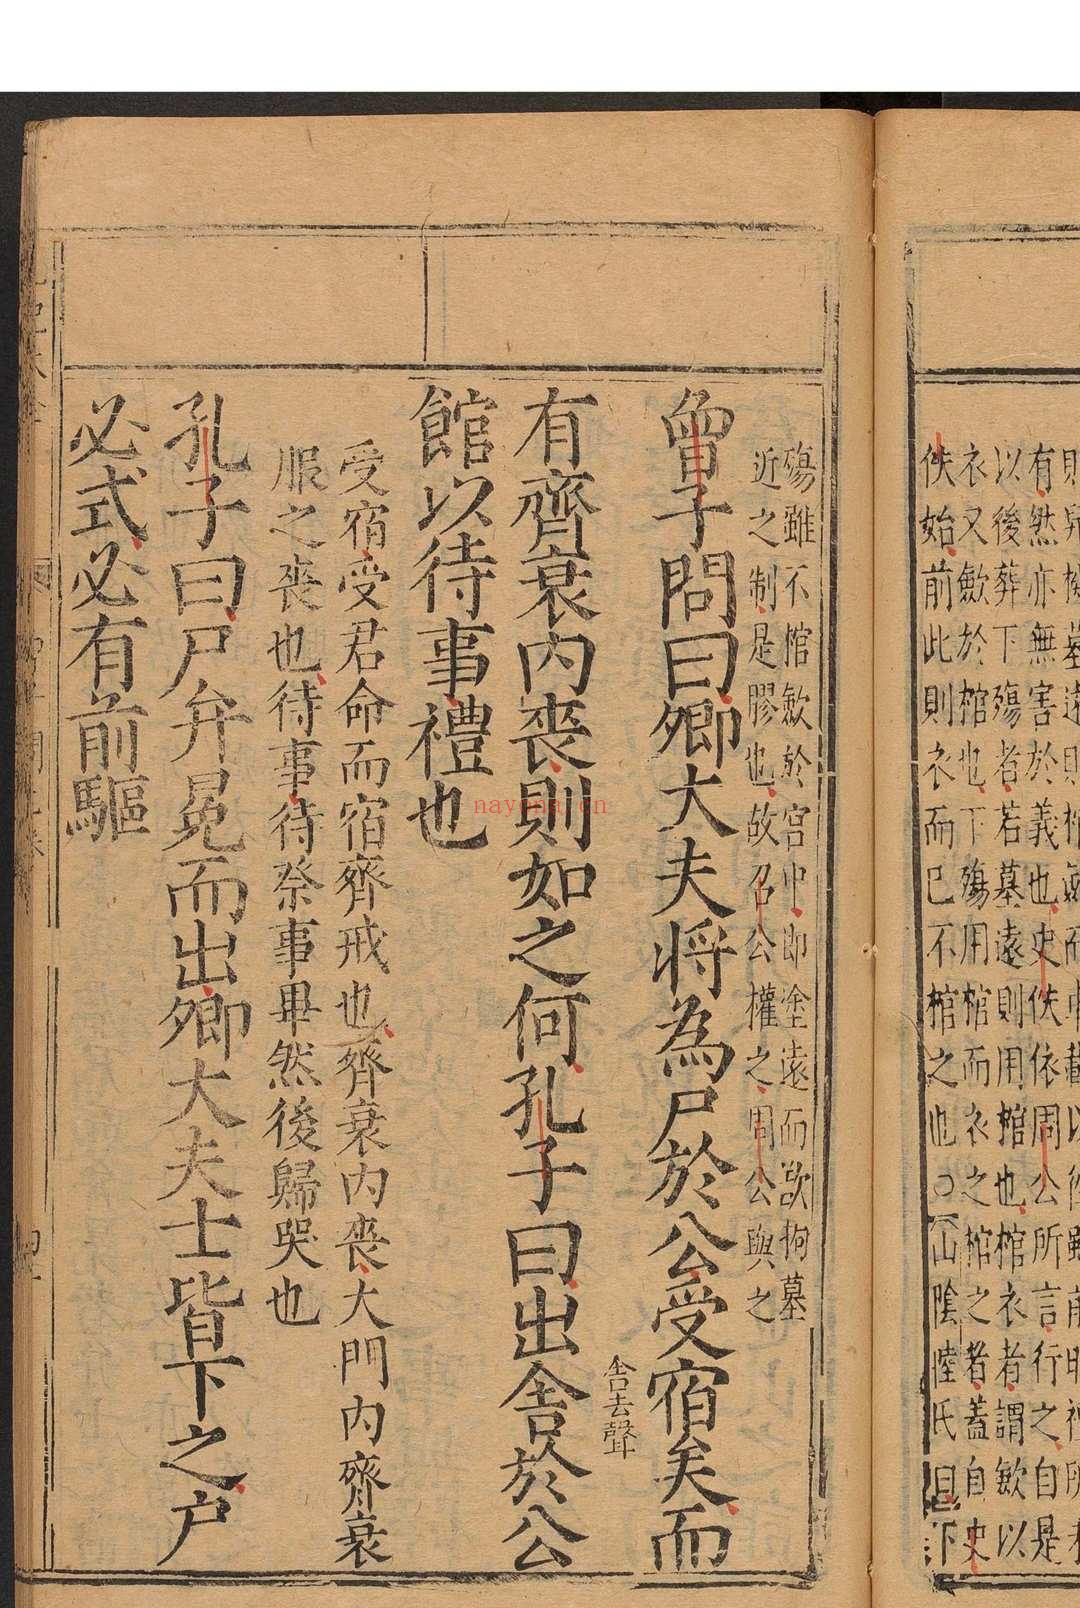 有然亦無害於義也史佚依周公所言行之自是
以後葬下殤者若墓遠則用棺也棺衣者謂斂以
衣又斂於棺也下殤用棺而衣之棺之者蓋自史
佚始前此則衣而已不棺之也○山陰陸氏曰下
殤雖不棺斂於宮中即塗遠而欲拘墓
近之制是膠也故召公權之周公與之
曾子問曰卿大夫將為尸於公受宿矣而
舎去聲
有齊衰內喪則如之何孔子曰出舎於公
館以待事禮也
受宿受君命而宿齊戒也齊衰內喪大門內齊衰
服之喪也待事待祭事畢然後歸哭也
孔子曰尸弁冕而出卿大夫士皆下之尸
必式必有前驅
nayona.cn